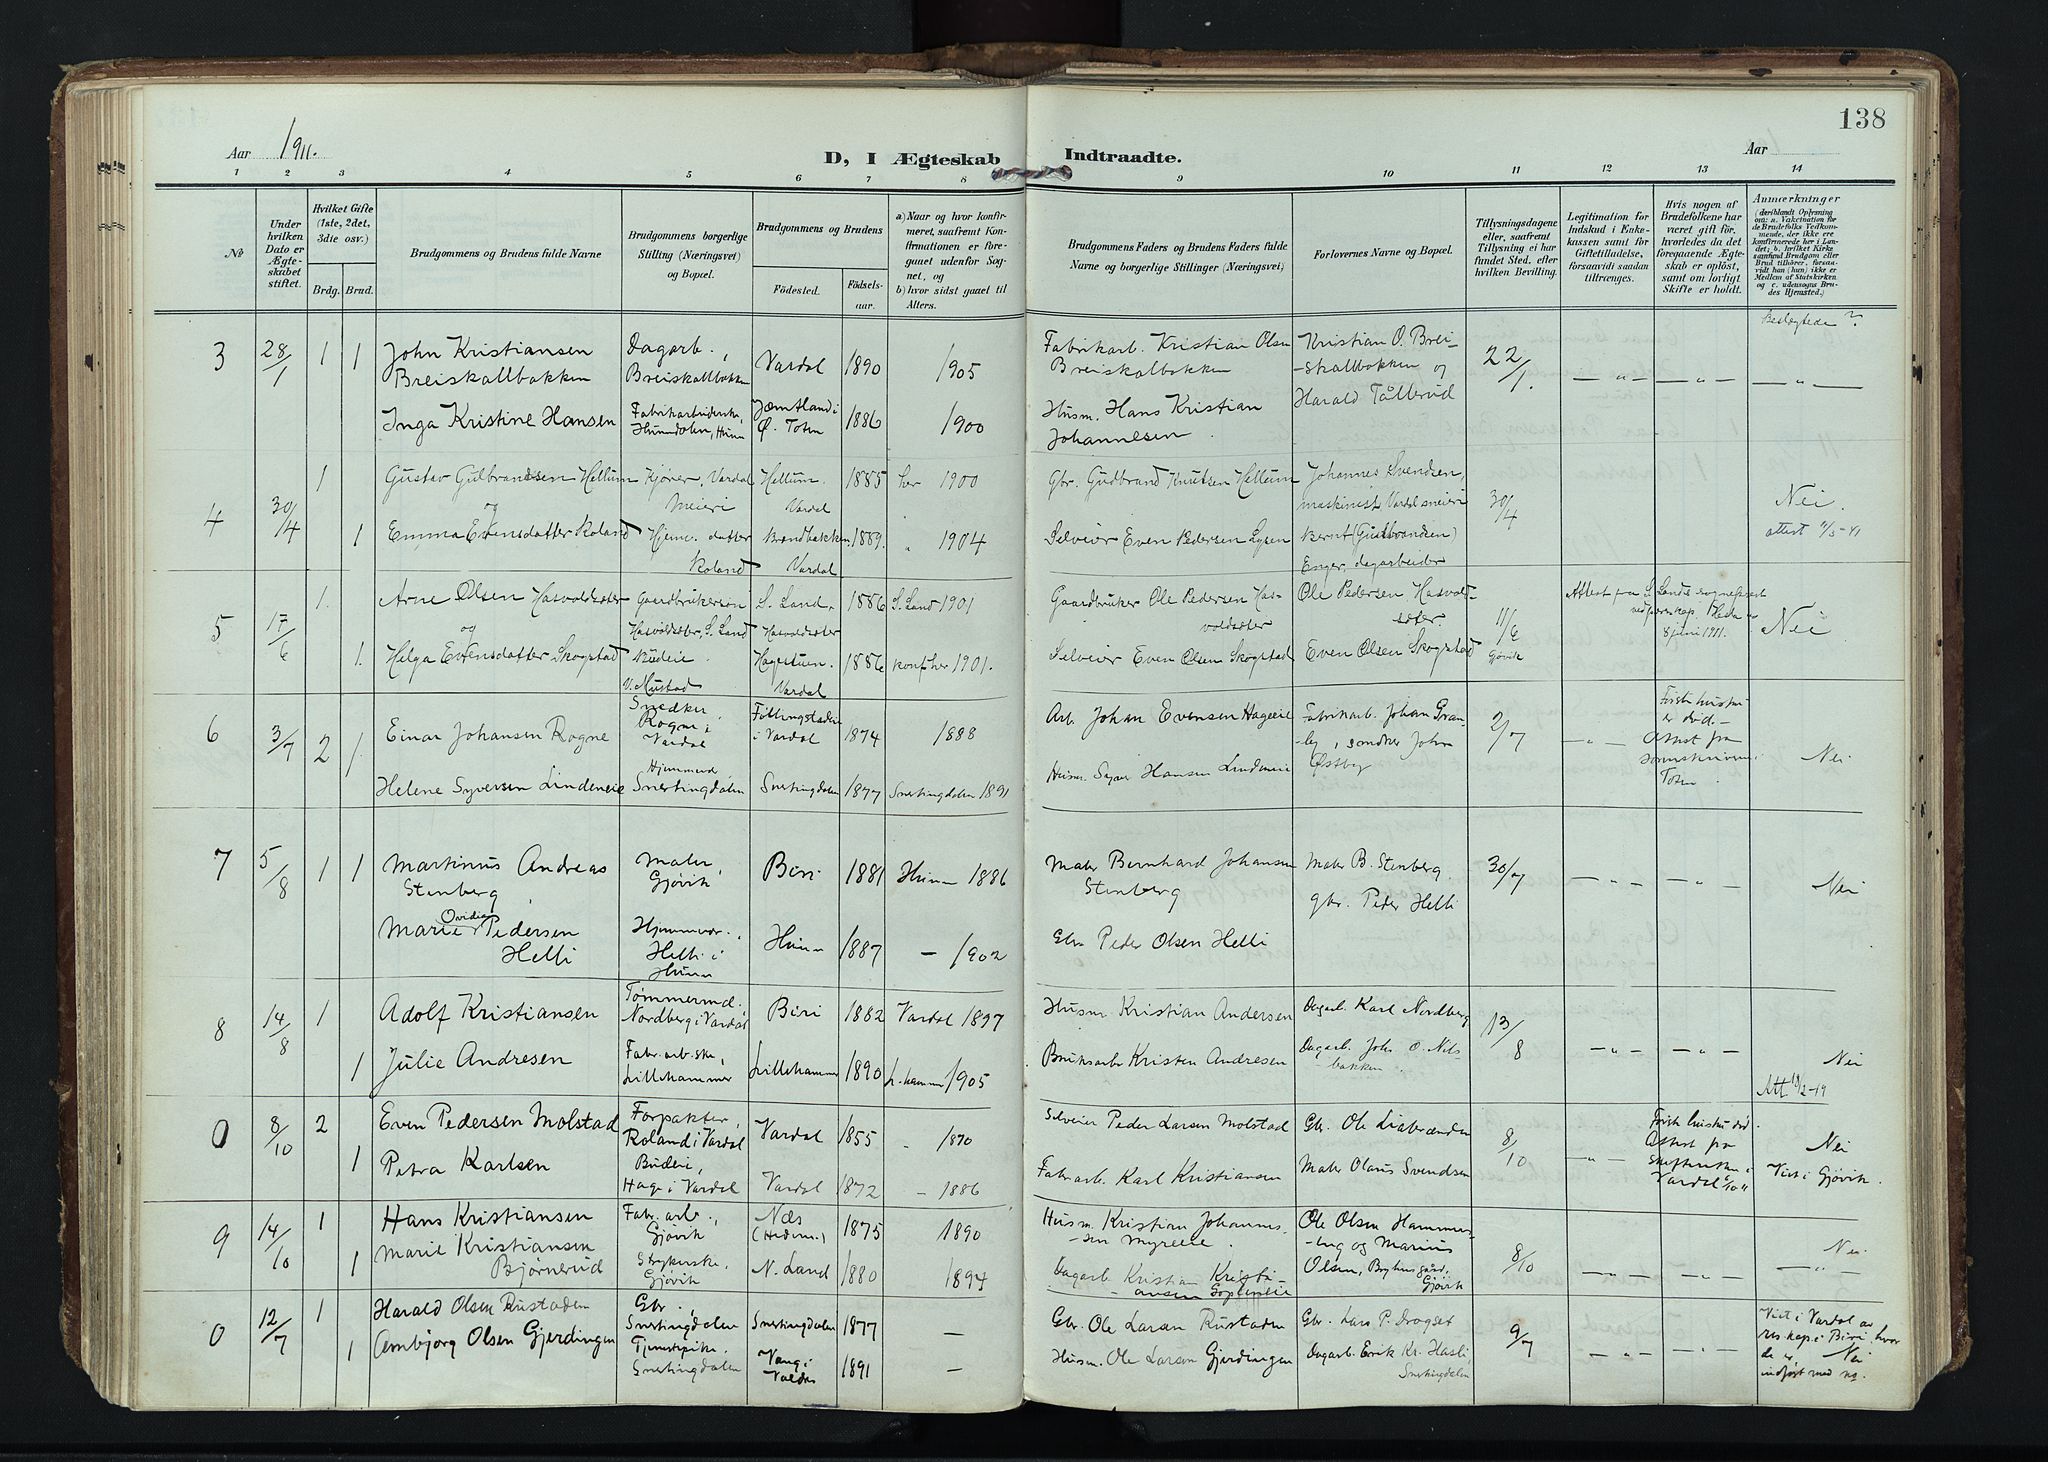 138
Aar 1911.
D, I Ægteskab Indtraadte.
Aar
1 2 3 4 5 6 7 8 9 10 11 12 13 14
No
Under hvilken Dato er Ægteskabet stiftet.
Hvilket Gifte (1ste, 2det, 3die osv.)
Brdg. Brud.
Brudgommens og Brudens fulde Navne
Brudgommens borgerlige Stilling (Næringsvei) og Bopæl.
Brudgommens og Brudens
Fødested. Fødselsaar.
a) Naar og hvor konfirmeret, saafremt Konfirmationen er foregaaet udenfor Sognet, og
b) hvor sidst gaaet til Alters.
Brudgommens Faders og Brudens Faders fulde Navne og borgerlige Stillinger (Næringsvei)
Forlovernes Navne og Bopæl.
Tillysningsdagene eller, saafremt Tillysning ei har fundet Sted, efter hvilken Bevilling.
Legitimation for Indskud i Enkekassen samt for Giftetilladelse, forsaavidt saadan tiltrænges.
Hvis nogen af Brudefolkene har været gift før, hvorledes da det foregaaende Ægteskab er opløst, samt om lovligt Skifte er holdt.
Anmærkninger
(deriblandt Oplysning om: a. Vakcination for de Brudefolks Vedkommende, der ikke ere konfirmerede her i Landet; b. hvilket Kirkesamfund Brudgom eller Brud tilhører, forsaavidt han (hun) ikke er Medlem af Statskirken og c. udensogns Brudes Hjemsted.)
Beslægtede ?
3 28/1 1 1 John Kristiansen Dagarb., Vardal 1890 1905 Fabrikarb. Kristian Olsen Kristian O. Brei- 22/1.
Breiskallbakken Breiskallbakken Breiskalbakken -skallbakken og
Inga Kristine Hansen Fabrikarbeiderske, Hunndalen, Hunn Jæmtland i Ø. Toten 1886 1900 Husm. Hans Kristian Johannesen Harald Tållerud
4 30/4 1 Gustav Gulbrandsen Hellum Kjører, Vardal Meieri Hellum. Vardal 1885 her 1900 Gbr. Gudbrand Knutsen Hellum Johannes Svendsen, maskinist, Vardal meieri 30/4 Nei.
og
1 Emma Evensdatter Roland Hjemv. datter Roland Brandbakken Vardal 1889. " 1904 Selveier Even Pedersen Lysen Bernt (Gulbrandsen) Enger, dagarbeider
5 17/6 1. Arne Olsen Hasvoldsæter Gaardbrukersøn Hasvoldsæter, S. Land S. Land. Hasvoldsæter 1886 S. Land 1901 Gaardbruker Ole Pedersen Hasvoldsæter Ole Pedersen Hasvoldsæter. 11/6 Gjøvik Nei
og
1. Helga Evensdatter Skogstad Budeie v. Mustad Hagestuen. Vardal 1886 konf. her 1901. Selveier Even Olsen Skogstad Even Olsen Skogstad
8 juni 1911.
6 3/7 2 1. Einar Johansen Rogne Snedker, Rogne i Vardal i Vardal 1874 1888 Arb. Johan Evensen Hageeie Fabrikarb. Johan Granley, snedker John Østby 2/7 Første hustru er død. - Attest fra Toten. Nei
Helene Syversen Lindeneie Hjemmev. Snertingdalen Snertingdalen 1877 Snertingdalen 1891 Husm. Syver Hansen Lindeneie
7 5/8 1 1 Martinus Andreas Stenberg Maler, Gjøvik Biri 1881 Hunn 1886 Maler Bernhard Johansen Stenberg Maler B. Stenberg. 30/7 Nei
Marie Ovidia Pedersen Helli Hjemmev., Helli i Hunn Hunn 1887 - 1902 Gbr. Peder Olsen Helli gbr. Peder Helli
8 14/8 1 Adolf Kristiansen Tømmermd. Nordberg i Vardal Biri 1882 Vardal 1897 Husm. Kristian Andersen Dagarb. Karl Nordberg 13/8
1 Julie Andresen Fabr. arb.ske, Lillehammer Lillehammer 1890 L.hammer 1905 Bruksarb. Kristen Andresen Dagarb. Johs. O. Nilsbakken. Nei
0 8/10 2 Even Pedersen Molstad Forpakter, Roland i Vardal Vardal 1855 1870 Selveier Peder Larsen Molstad Gbr. Ole Liabrænden 8/10 Første hustru død. Attest fra Vardal Nei
1 Petra Karlsen Budeie, Hage i Vardal Vardal 1872 - 1886 Fabr.arb. Karl Kristiansen Maler Olaus Svendsen Viet i Gjøvik.
9 14/10 1 Hans Kristiansen Fabr. arb., Gjøvik Næs (Hedem.) 1875 1890 Husm. Kristian Johannessen Myreeie. Ole Olsen Hammer- 8/10 Nei
1 Marie Kristiansen Bjørnerud Strykerske, Gjøvik N. Land 1880 1894 Dagarb. Kristian Kristiansen og Marius Olsen, Gjøvik
0 12/7 1 Harald Olsen Rustaden Gbr., Snertingdalen Snertingdalen 1877 - Gbr. Ole Larsen Rustaden Gbr. Lars P. Drogset 9/7 Viet i Vardal av res. kap. i Biri, hvor de er indført med no. Nei
1 Arnbjørg Olsen Gjerdingen Tjenestepike, Snertingdalen Vang i Valdres 1891 - Husm. Ole Larsen Gjerdingen Dagarb. Erik Kr. Hasli Snertingdalen